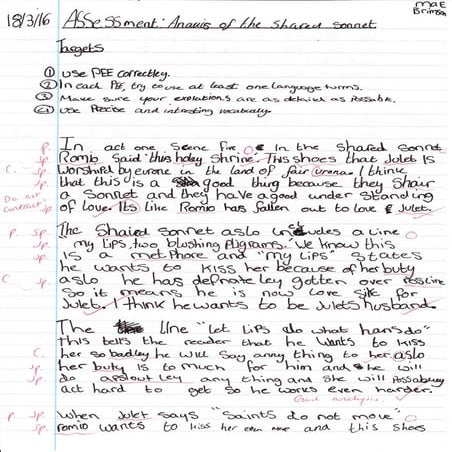 MaE
Brimson
18/3/16 Assessment: Anauis of the shared sonnet
Targets
① Use PEE correctley.
② In each PEE, try to use at least one language terms.
③ Make sure your explations are as detailed as possable.
④ Use Precise and intresting vocabualy
p. In act one scene five In the shared sonnet
sp. Romio said 'this holey shrine'. This shoes that Julet is
C. sp. worshiped by evrone in the land of fair verona I think
sp. that this is a good thing because they shair
Do not contract sp. a sonnet and they have a good under standing
of love. Its like Romio has fallen out to love Julet.
p. sp. The Shaired sonnet aslo includes a line
sp. my lips, two blushing pligrams.' We know this
sp. is a metphore and "my lips" states
he wants to kiss her because of her buty
C. aslo he has definateley gotten over
sp. So it means he is now love sik for
Julet. I think he wants to be Julets husband.
The line "let lips do what hans do"
this tells the reader that he wants to kiss
C. her so badley he will say anny thing to her aslo
sp. her buty is to much for him and he will
sp. do any thing and she will possabley
act hard to get so he works even harder.
Good analysis. ✓
p. sp. When Julet says "Saints do not move"
sp. romio wants to kiss her and this shoes